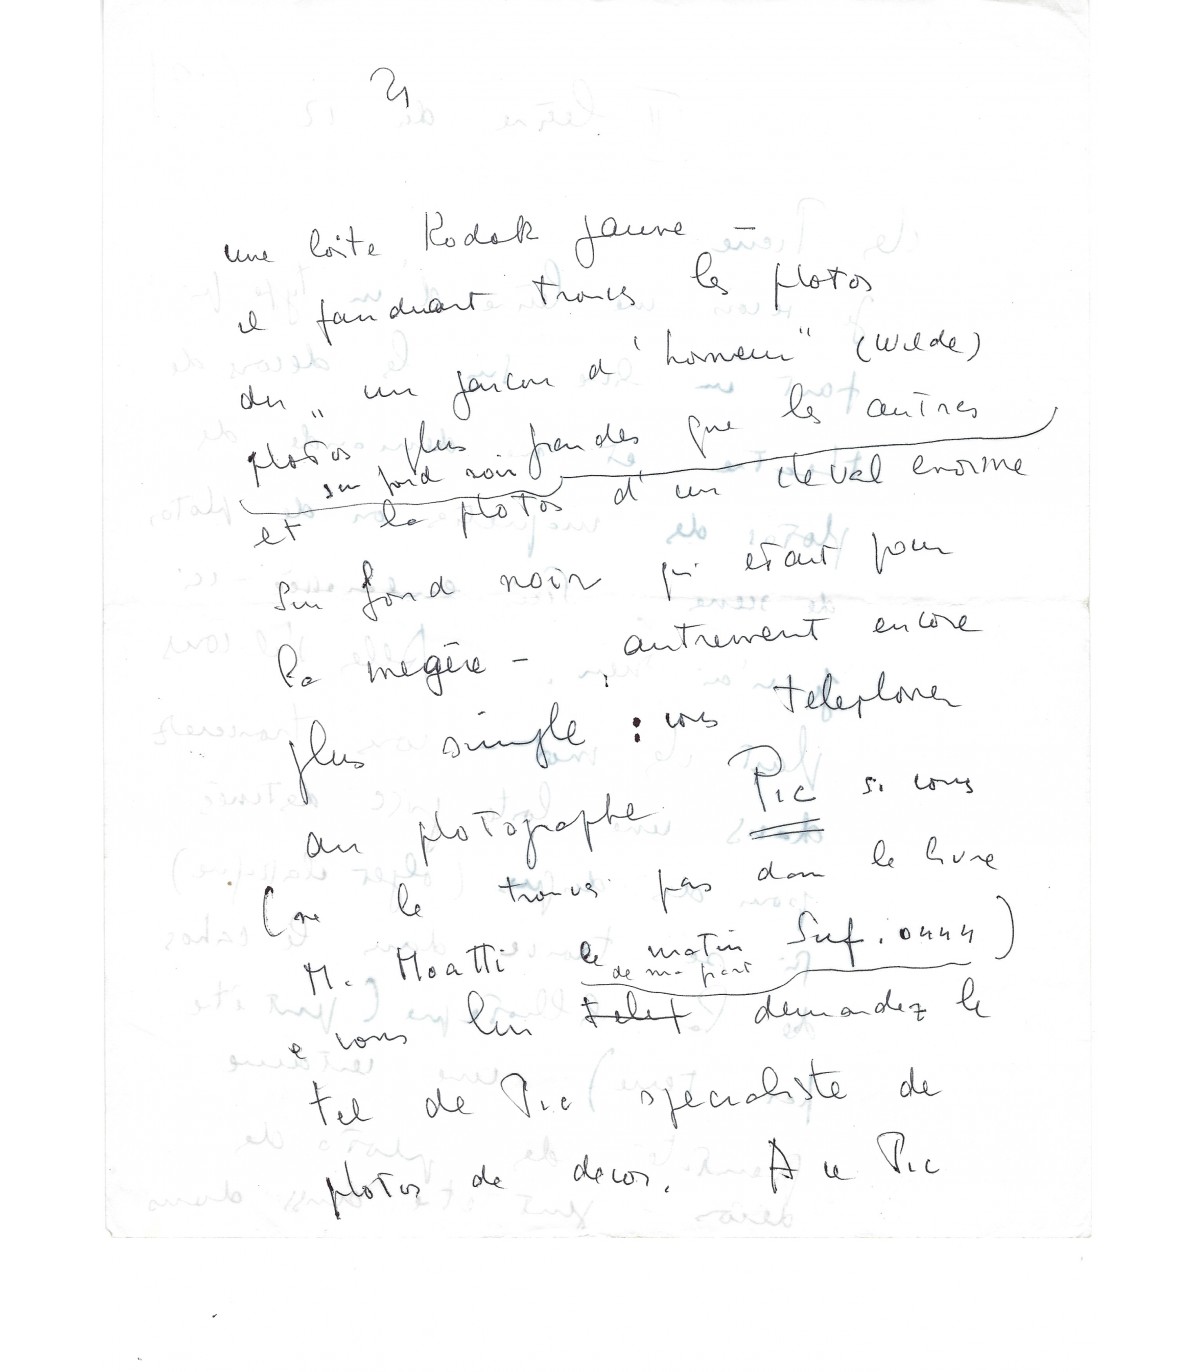 21
une boite Kodak jaune –
il faudrait trouver les photos
du "un garçon d'honneur" (Wilde)
photos plus grandes que les autres
sur fond noir
et la photos d'un cheval enorme
sur fond noir qui etait pour
la megère – autrement encore
plus simple : vous telephoner
au photographe Pic si vous
(ne le trouver pas dans le livre
M. Moatti le matin Suf. 0444)
de ma part
e vous lui telef demandez le
tel de Pic specialiste de
photos de decos. A ce Pic